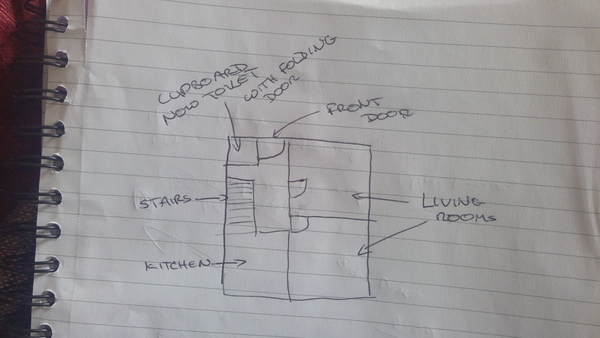 CUPBOARD
NOW TOILET
WITH FOLDING
DOOR
FRONT
DOOR
STAIRS
LIVING
ROOMS
KITCHEN